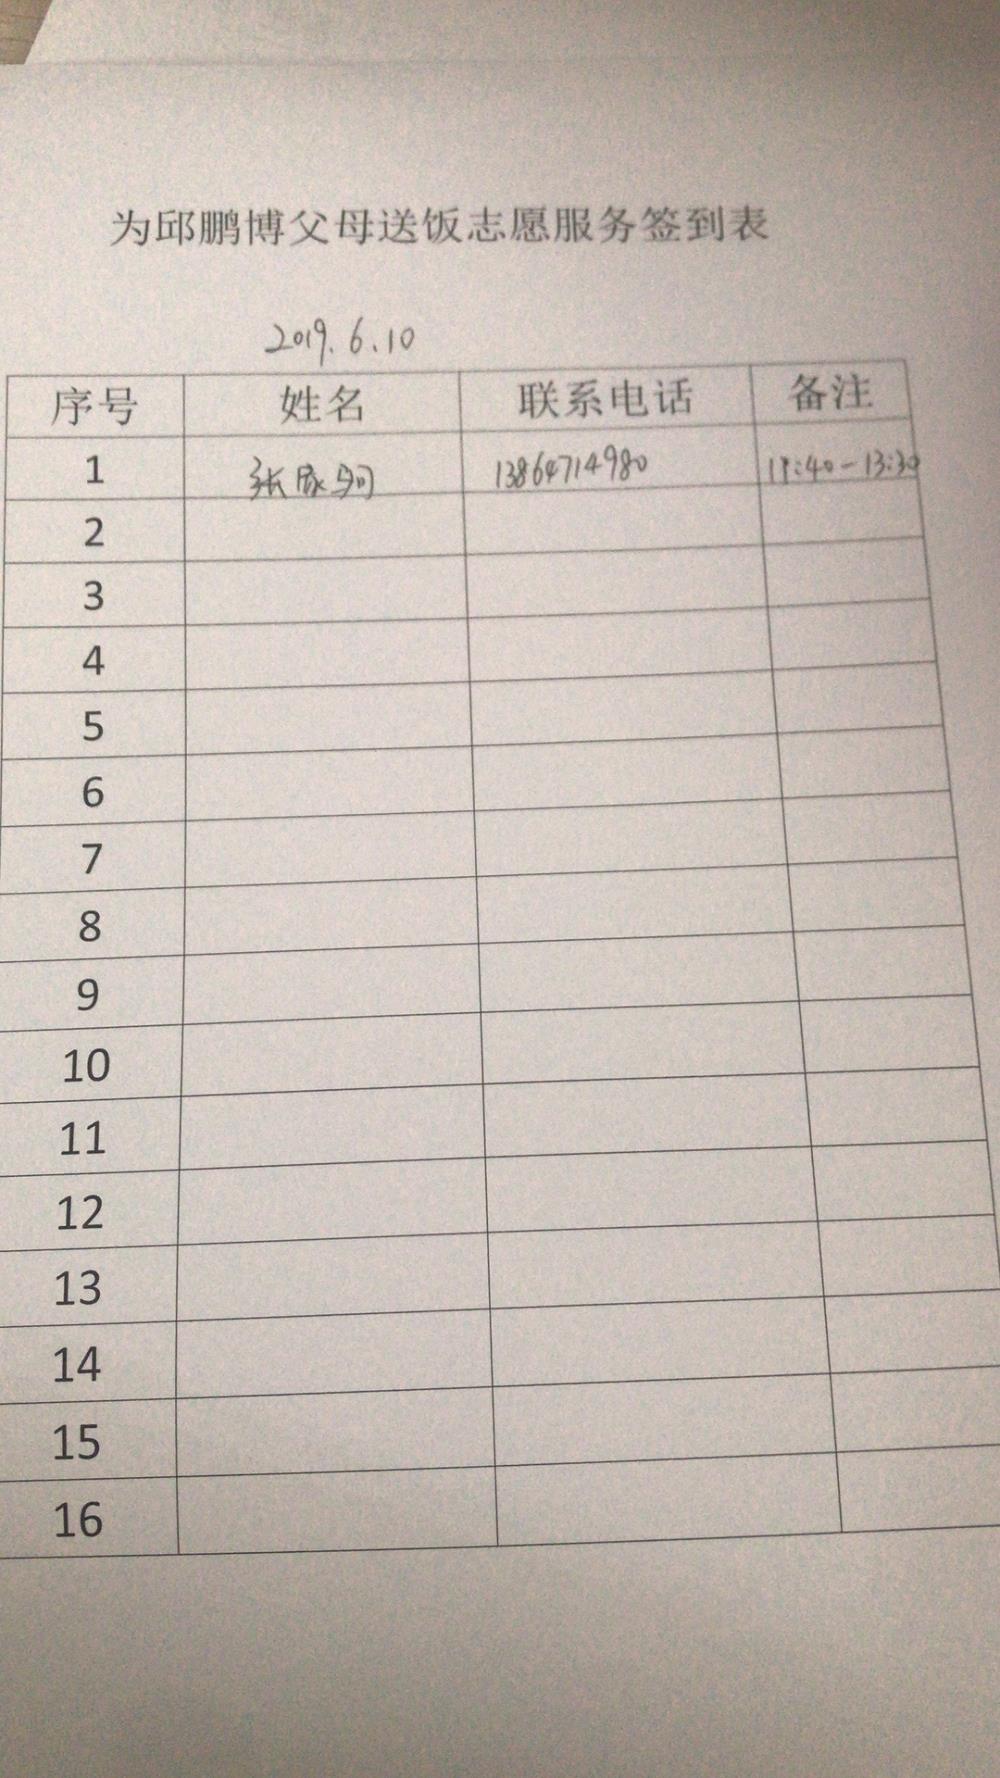 为邱鹏博父母送饭志愿服务签到表
2019.6.10
序号 姓名 联系电话 备注
1 张 13864714980 11:40-13:30
2
3
4
5
6
7
8
9
10
11
12
13
14
15
16